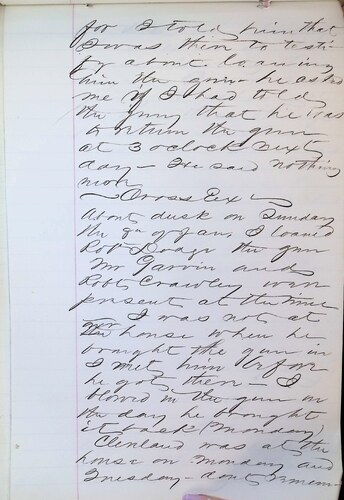 for I told him that
I was then to testi
fy about loaning
him the gun - he asked
me if I had told
the jury that he was
to return the gun
at 3 oclock next
day - He said nothing
more
Cross Ex
About dusk on Sunday
the 9th of Jan. I loaned
Robt the gun
Mr Garvin and
Robt Crawley were
present at the time
I was not at
the house when he
brought the gun in
I met him before
he got then - I
blowed in the gun on
the day he brought
it back (Monday)
Clenland was at the
house on Monday and
Tuesday - dont remem-